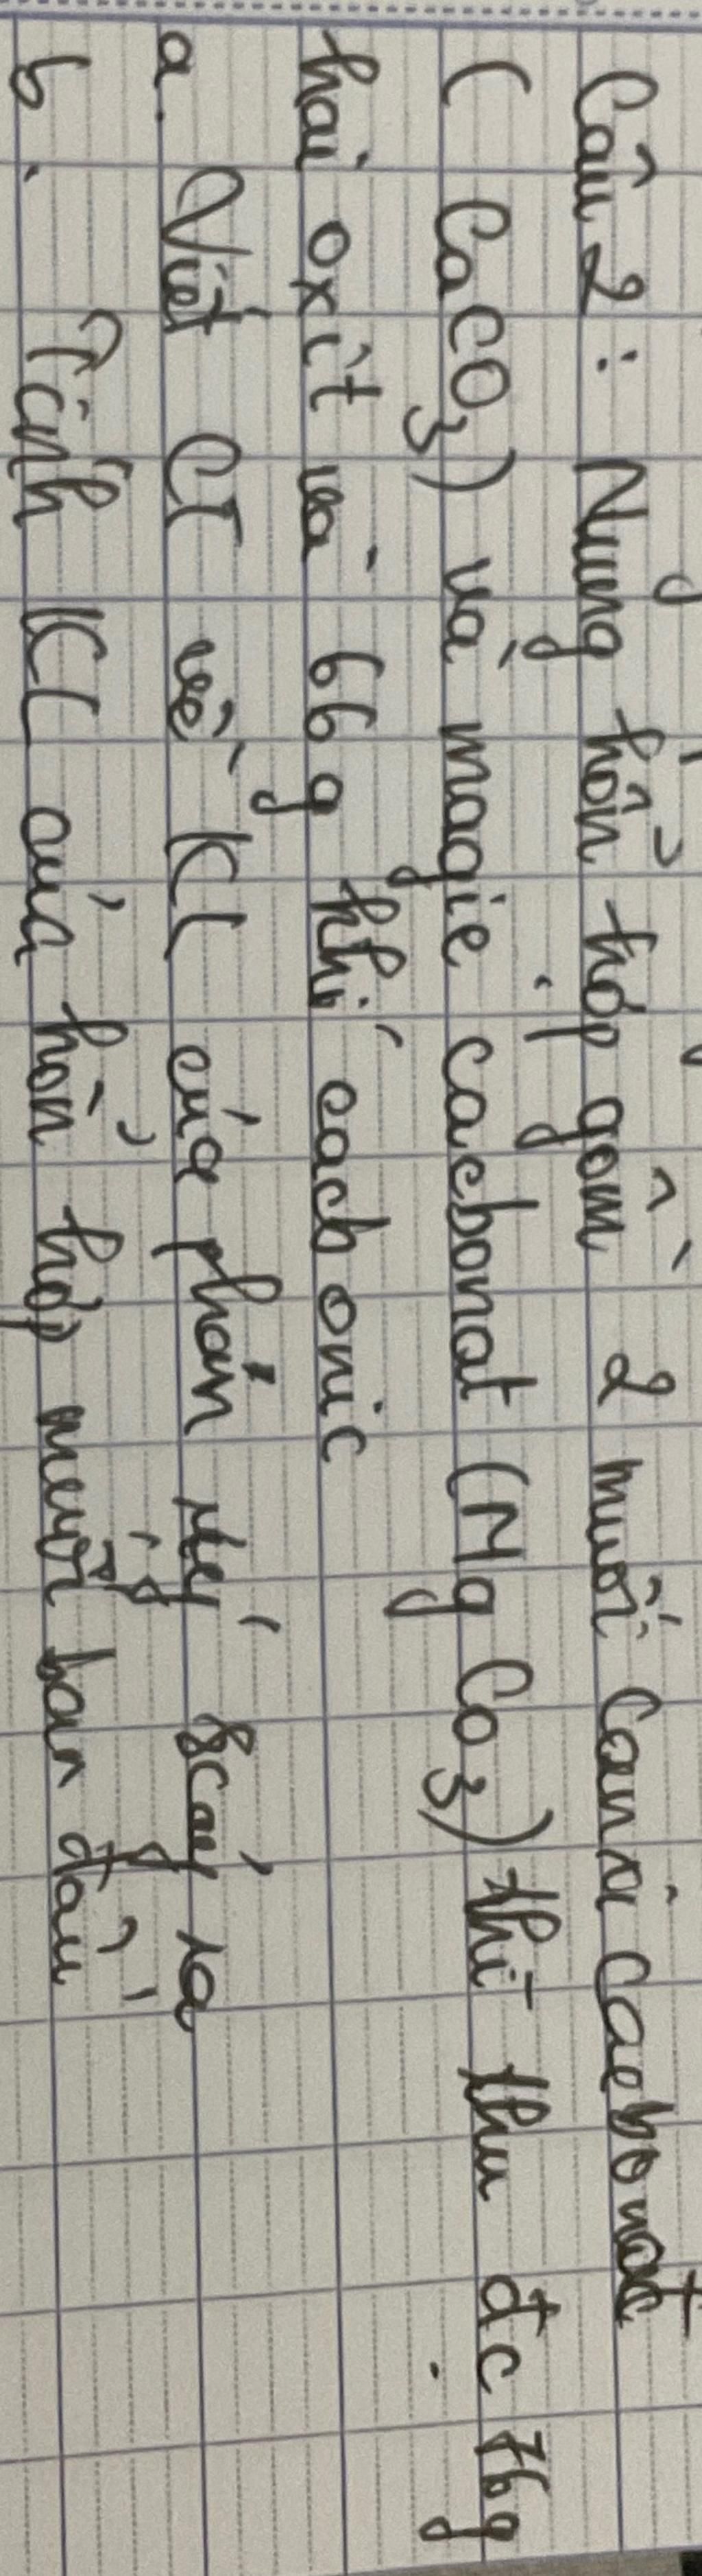 Câu 2: Nung hỗn hợp gồm 2 muối Canxi cacbonat
( CaCO3) và magie cacbonat (MgCo3) thì thu đc 76g
hai oxit và 66g khí cacbonic
a. Viết CT về KL của phản ứng xảy ra
b. Tính KL của hỗn hợp muối ban đầu